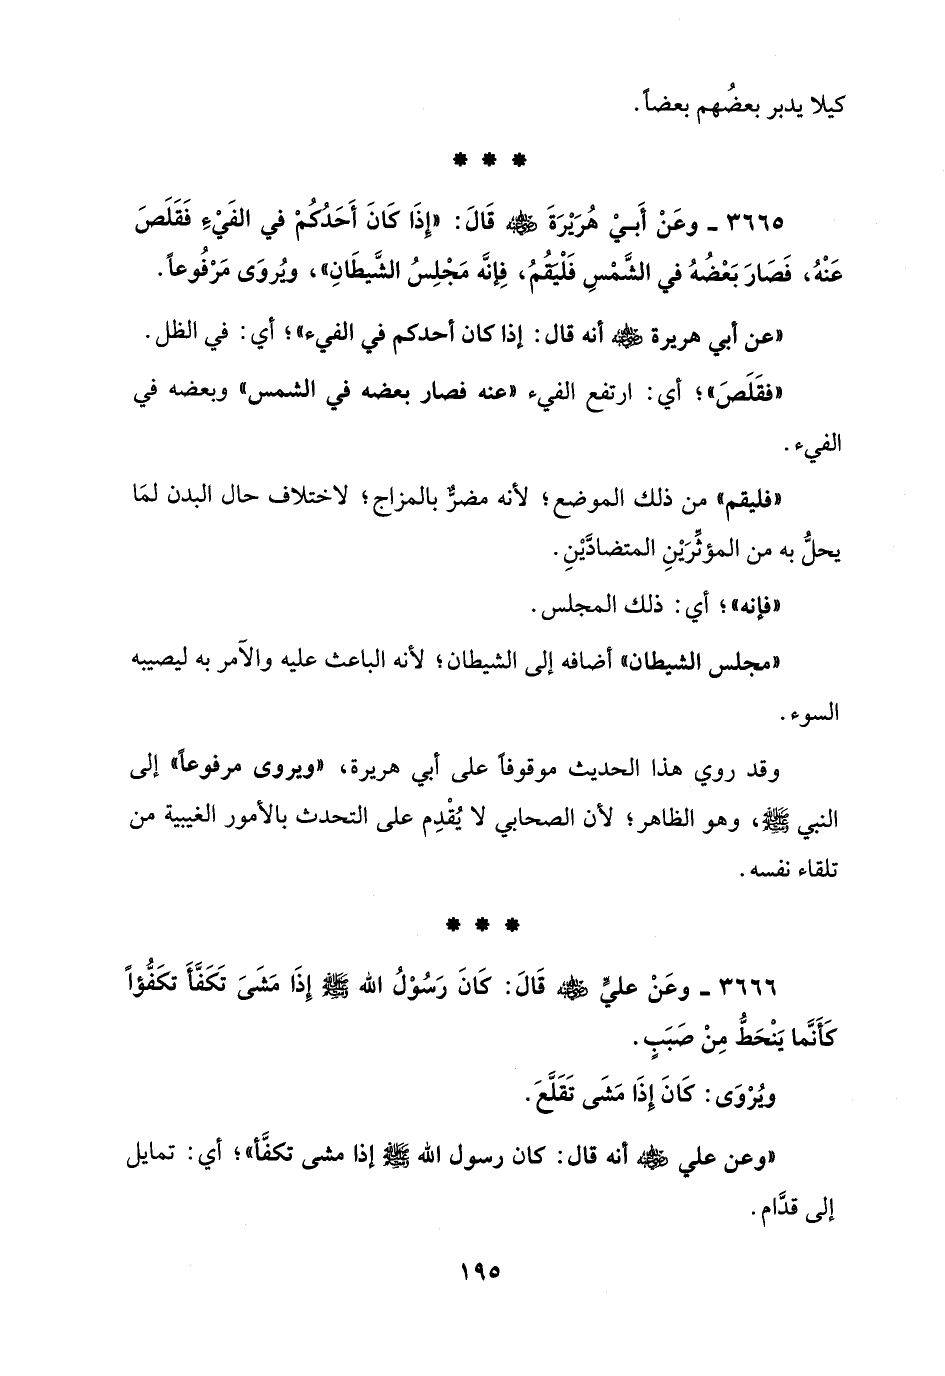 كيلا يدبر بعضُهم بعضاً.
* * *
٣٦٦٥ ـ وعَنْ أَبيْ هُرَيْرَةَ ﵁ قَالَ: «إِذَا كَانَ أَحَدُكُمْ في الفَيْءِ فَقَلَصَ
عَنْهُ، فَصَارَ بَعْضُهُ في الشَّمْسِ فَلْيَقُمُ، فِإنَّه مَجْلِسُ الشَّيطَانِ»، ويُروَى مَرْفُوعاً.
«عن أبي هريرة ﵁ أنه قال: إذا كان أحدكم في الفيء»؛ أي: في الظل.
«فقَلَصَ»؛ أي: ارتفع الفيء «عنه فصار بعضه في الشمس» وبعضه في
الفيء.
«فليقم» من ذلك الموضع؛ لأنه مضرٌّ بالمزاج؛ لاختلاف حال البدن لمَا
يحلُّ به من المؤثِّرَيْنِ المتضادَّيْنِ.
«فإنه»؛ أي: ذلك المجلس.
«مجلس الشيطان» أضافه إلى الشيطان؛ لأنه الباعث عليه والآمر به ليصيبه
السوء.
وقد روي هذا الحديث موقوفاً على أبي هريرة، «ويروى مرفوعاً» إلى
النبي ﷺ، وهو الظاهر؛ لأن الصحابي لا يُقْدِم على التحدث بالأمور الغيبية من
تلقاء نفسه.
* * *
٣٦٦٦ ـ وعَنْ عليٍّ ﵁ قَالَ: كَانَ رَسُوْلُ الله ﷺ إِذَا مَشَىَ تَكَفَّأَ تكَفُّؤاً
كَأَنَّما يَنْحَطُّ مِنْ صَبَبٍ.
ويُرْوَى: كَانَ إِذَا مَشَى تَقَلَّعَ.
«وعن علي ﵁ أنه قال: كان رسول الله ﷺ إذا مشى تكفَّأ»؛ أي: تمايل
إلى قدَّام.
١٩٥